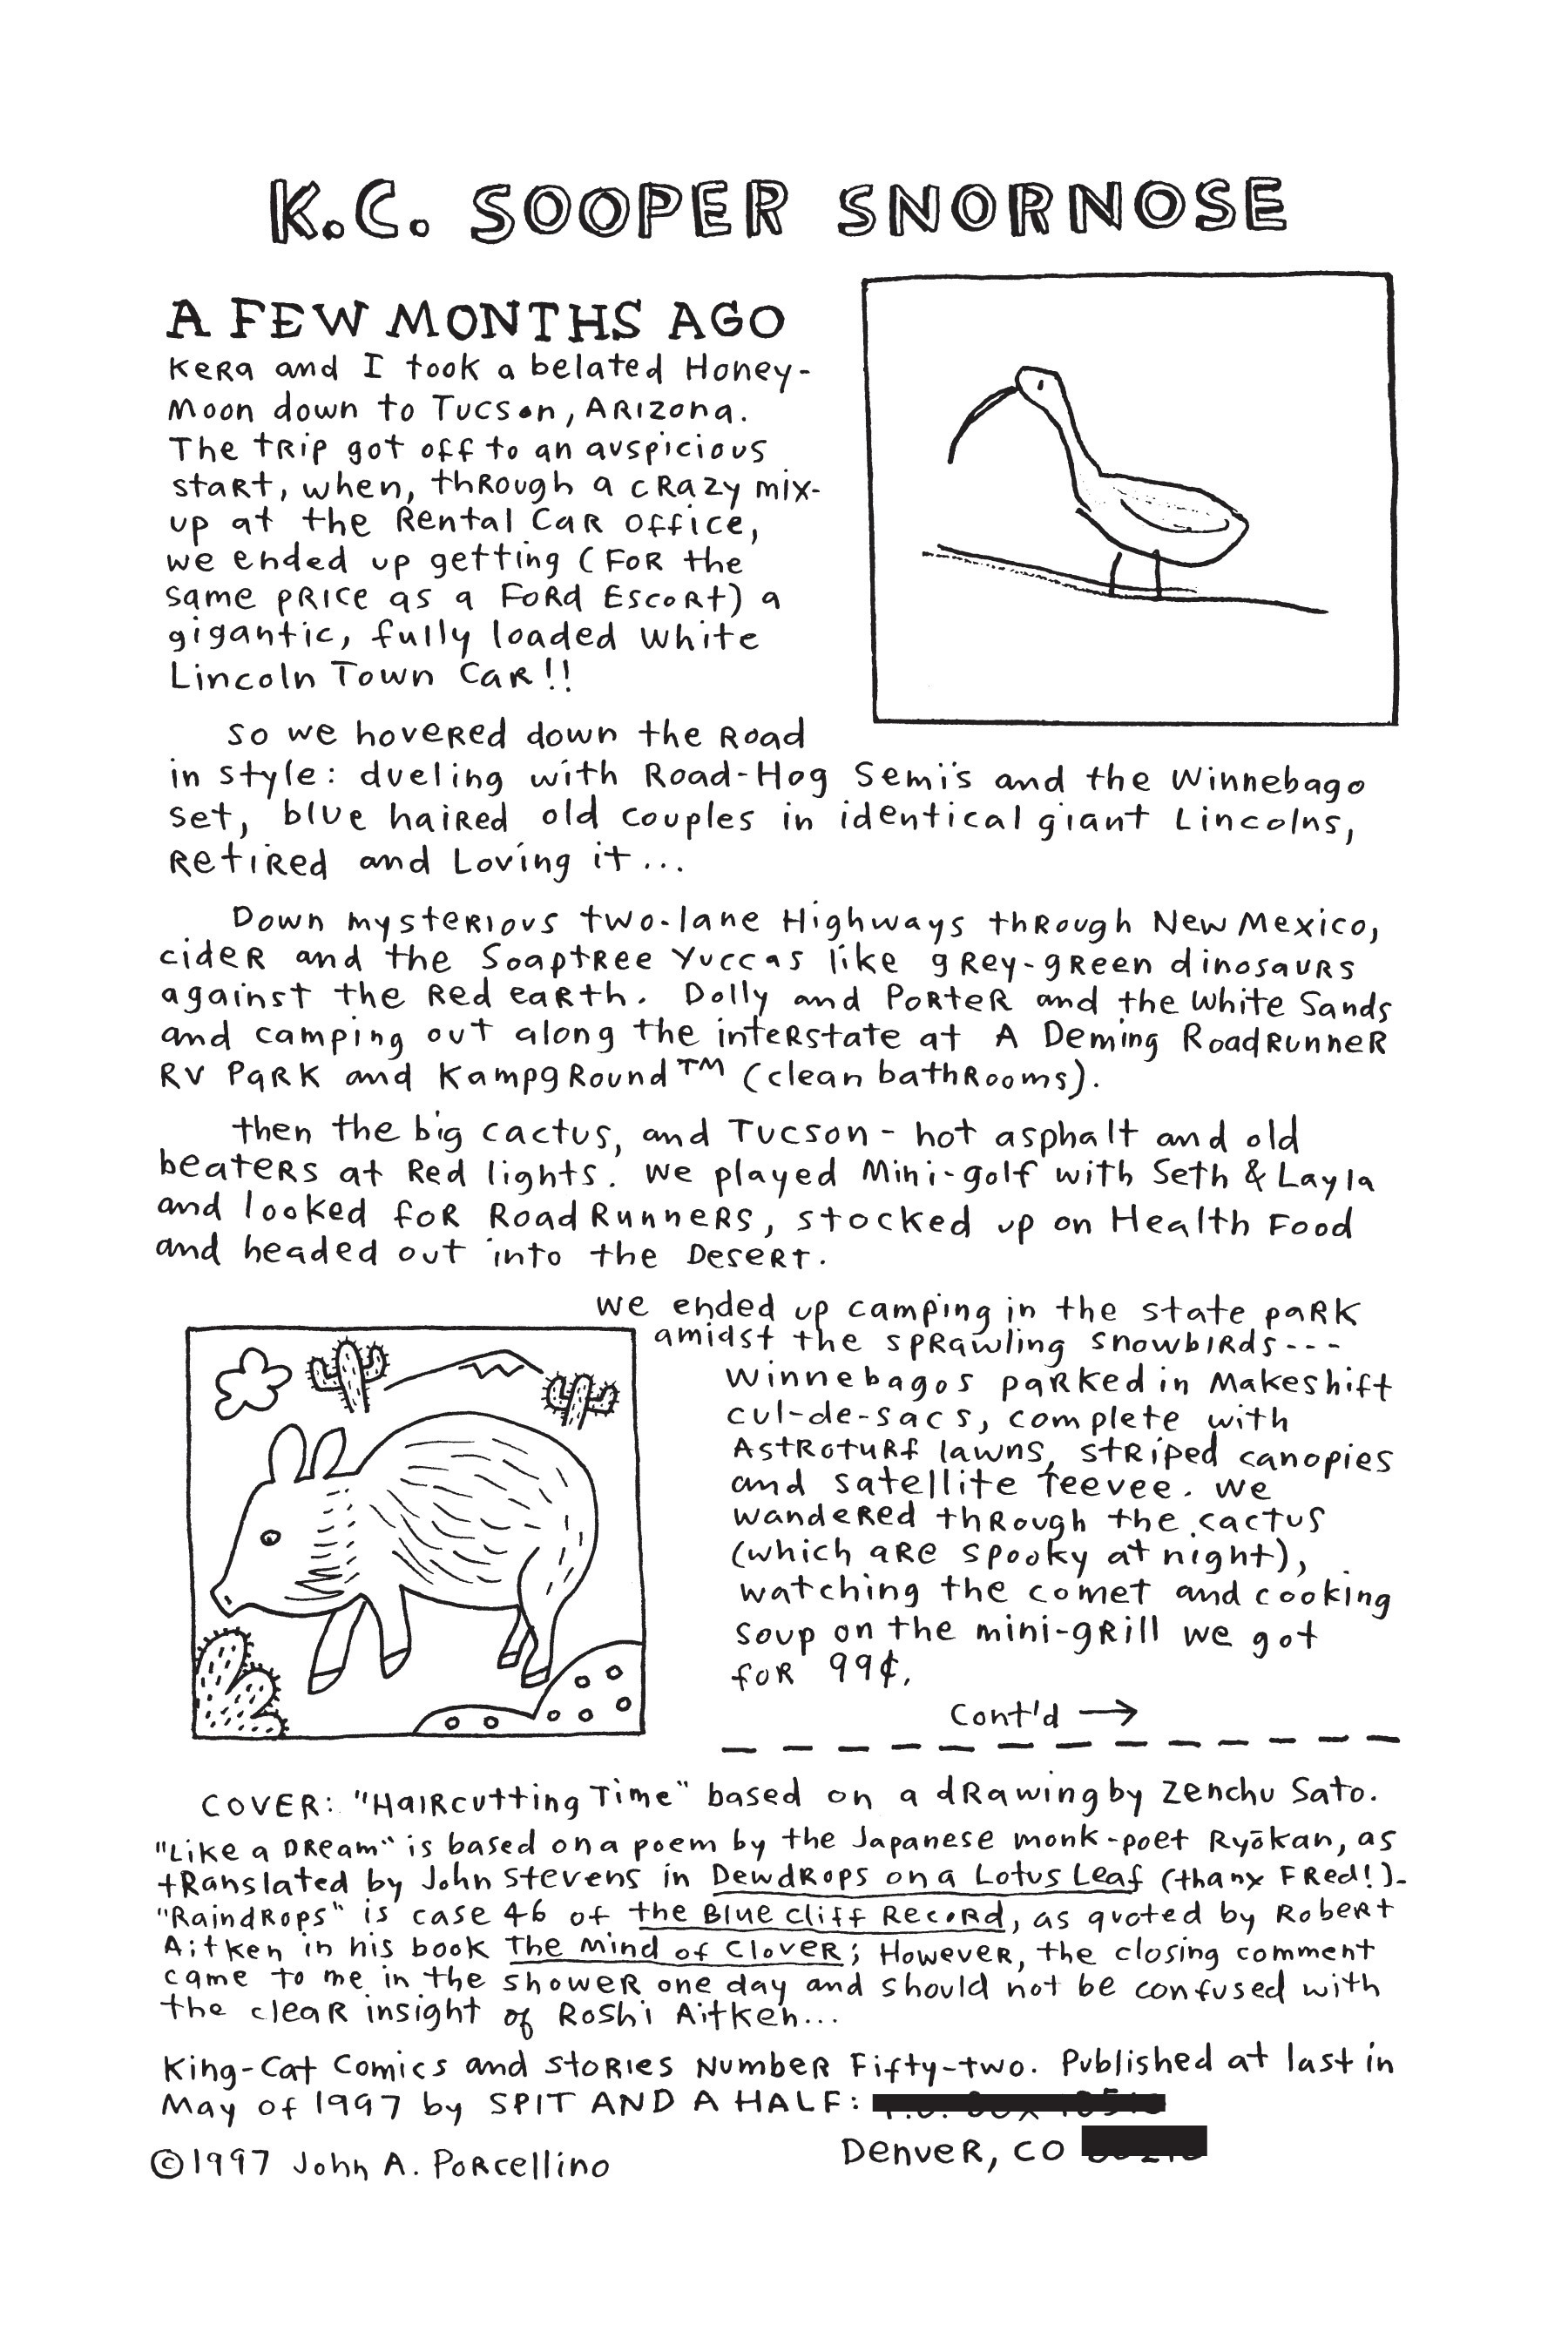 K.C. SOOPER SNORNOSE
A FEW MONTHS AGO
Kera and I took a belated Honey-
Moon down to Tucson, Arizona.
The trip got off to an auspicious
start, when, through a crazy mix-
up at the Rental Car office,
we ended up getting (for the
same price as a Ford Escort) a
gigantic, fully loaded white
Lincoln Town Car!!
so we hovered down the Road
in style: dueling with Road-Hog Semi's and the Winnebago
set, blue haired old couples in identical giant Lincolns,
Retired and Loving it...
Down mysterious two-lane Highways through New Mexico,
cider and the Soaptree Yuccas like grey-green dinosaurs
against the Red earth. Dolly and Porter and the White Sands
and camping out along the interstate at A Deming Roadrunner
RV Park and Kampground™ (clean bathrooms).
then the big cactus, and Tucson - hot asphalt and old
beaters at Red lights. We played Mini-golf with Seth & Layla
and looked for RoadRunners, stocked up on Health Food
and headed out into the Desert.
we ended up camping in the state park
amidst the sprawling snowbirds---
Winnebagos parked in Makeshift
cul-de-sacs, complete with
Astroturf lawns, striped canopies
and satellite Teevee. We
wandered through the cactus
(which are spooky at night),
watching the comet and cooking
soup on the mini-grill we got
for 99¢.
Cont'd →
COVER: "Haircutting Time" based on a drawing by Zenchu Sato.
"Like a Dream" is based on a poem by the Japanese monk-poet Ryōkan, as
translated by John Stevens in Dewdrops on a Lotus Leaf (thanx Fred!).
"Raindrops" is case 46 of the Blue Cliff Record, as quoted by Robert
Aitken in his book The Mind of Clover; However, the closing comment
came to me in the shower one day and should not be confused with
the clear insight of Roshi Aitken...
King-Cat Comics and stories Number Fifty-two. Published at last in
May of 1997 by SPIT AND A HALF:
Denver, CO
©1997 John A. Porcellino